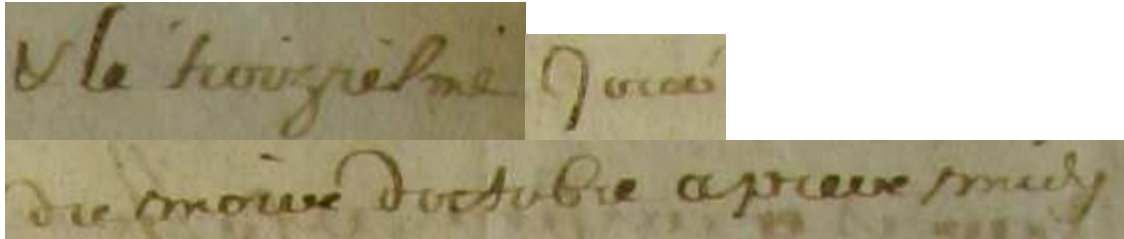 & le troiziesme Jour
du mois doctobre apres midy